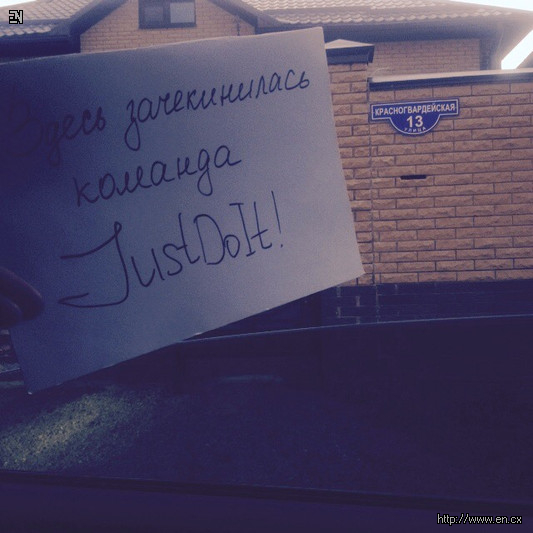 EN
Здесь зачекинилась
команда
JustDoIt!
КРАСНОГВАРДЕЙСКАЯ
13
УЛИЦА
http://www.en.cx